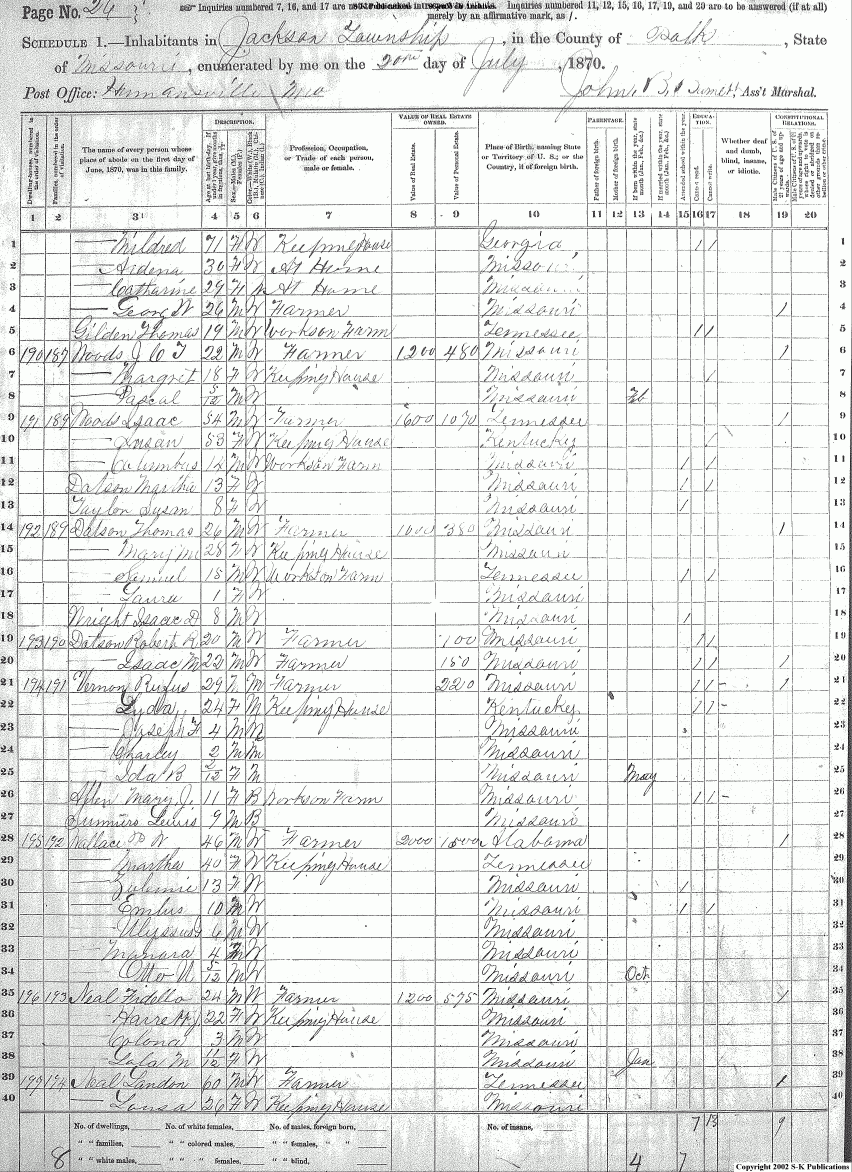 Page No. 24
Inquiries numbered 7, 16, and 17 are not to be asked in respect to infants. Inquiries numbered 11, 12, 15, 16, 17, 19, and 20 are to be answered (if at all)
merely by an affirmative mark, as /.
SCHEDULE 1.—Inhabitants in Jackson Township, in the County of Polk, State
of Missouri, enumerated by me on the day of July, 1870.
Post Office: Humansville Mo John B. Ass't Marshal.
DESCRIPTION. VALUE OF REAL ESTATE OWNED. PARENTAGE. EDUCATION. CONSTITUTIONAL RELATIONS.
Dwelling-houses, numbered in the order of visitation. Families, numbered in the order of visitation. The name of every person whose place of abode on the first day of June, 1870, was in this family. Profession, Occupation, or Trade of each person, male or female. Value of Real Estate. Value of Personal Estate. Place of Birth, naming State or Territory of U. S.; or the Country, if of foreign birth. Father of foreign birth. Mother of foreign birth. Attended school within the year. Cannot read. Cannot write. Whether deaf and dumb, blind, insane, or idiotic.
1 2 3 4 5 6 7 8 9 10 11 12 13 14 15 16 17 18 19 20
1 — Mildred 71 F W Keeping House Georgia / / 1
2 — Ardena 30 F W At Home Missouri 2
3 — Catharine 29 F W At Home Missouri 3
4 — George W 26 M W Farmer Missouri / 4
5 Gilden Thomas 19 M W Works on Farm Tennessee / / 5
6 190 187 Woods J C T 22 M W Farmer 1200 480 Missouri / 6
7 — Margret 18 F W Keeping House Missouri / 7
8 — Pascal 5/12 M W Missouri Feb 8
9 191 189 Woods Isaac 54 M W Farmer 1600 1070 Tennessee / 9
10 — Susan 53 F W Keeping House Kentucky 10
11 — Columbus 14 M W Works on Farm Missouri / / 11
12 Datson Martha 13 F W Missouri / / 12
13 Taylor Susan 8 F W Missouri / 13
14 192 189 Datson Thomas 26 M W Farmer 1000 380 Missouri / 14
15 — Mary M 28 F W Keeping House Missouri 15
16 — Samuel 15 M W Works on Farm Tennessee / / 16
17 — Laura 1 F W Missouri 17
18 Wright Isaac D 8 M W Missouri / 18
19 193 190 Datson Robert R 20 M W Farmer 100 Missouri / / 19
20 — Isaac M 22 M W Farmer 150 Missouri / / / 20
21 194 191 Vernon Rufus 29 M Farmer 220 Missouri / / – / 21
22 Lydia 24 F M Keeping House Kentucky / / – 22
23 — Joseph F 4 M M Missouri 23
24 — Charley 2 M M Missouri 24
25 — Ida B 2/12 F M Missouri May 25
26 Allen Mary J. 11 F B Works on Farm Missouri / / – 26
27 Lewis 9 M B Missouri 27
28 195 192 Wallace 46 M W Farmer 2000 1500 Alabama / 28
29 — Martha 40 F W Keeping House Tennessee 29
30 — 13 F W Missouri / 30
31 — Emlus 10 M W Missouri / / 31
32 — Ulyssus 6 M W Missouri 32
33 4 M W Missouri 33
34 — Otto 5/12 M W Missouri Oct 34
35 196 193 Neal Fidello 24 M W Farmer 1200 575 Missouri / 35
36 — J 22 F W Keeping House Missouri 36
37 — Colona 3 M W Missouri 37
38 — Lola M 11/12 F W Missouri Jan 38
39 197 194 Neal Landon 60 M W Farmer Tennessee / 39
40 — Lousa 26 F W Keeping House Missouri 40
No. of dwellings, No. of white females, No. of males, foreign born, No. of insane, 7 13 9
" " families, " " colored males, " " females, " "
8 " " white males, " " " females, " " blind, 4 7
Copyright 2002 S-K Publications